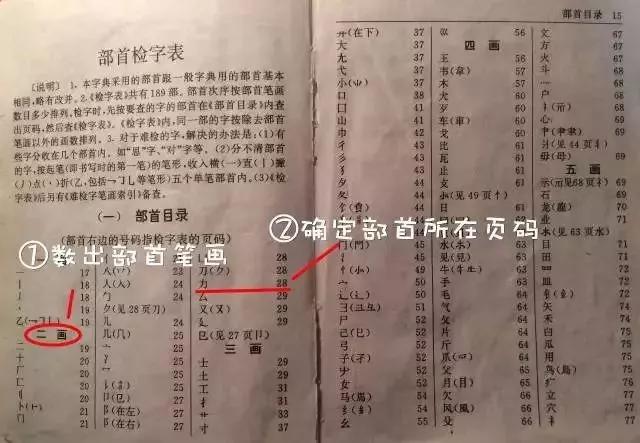 部首目录 15
部首检字表
〔说明〕 1．本字典采用的部首跟一般字典用的部首基本
相同,略有改并。2.《检字表》共有189部,部首次序按部首笔画
数目多少排列,检字时,先按要查的字的部首在《部首目录》内查
出页码,然后查《检字表》。《检字表》内,同一部的字按除去部首
笔画以外的画数排列。3. 对于难检的字,解决的办法是:(1)有
些字分收在几个部首内。如“思”字、“对”字等。(2)分不清部首
的字,按起笔(即书写时的第一笔)的笔形,收入横(一)直(丨)撇
(丿)点(丶)折(乙,包括㇕亅乚等笔形)五个单笔部首内。(3)《检
字表》后另有《难检字笔画索引》备查。
(一) 部首目录
(部首右边的号码指检字表的页码)
①数出部首笔画
一 17
丨 18
丿 18
丶 19
二画
二 19
十 20
厂 20
匚 20
人(入) 24
勹 24
夕(见28页刀)
儿 24
几(几) 25
亠 25
冫 25
阝(在左) 27
阝(在右) 27
28
刀(⺈) 28
力 28
厶 29
又(又) 29
廴 29
㔾(见27页卩)
三画
士 29
土 29
工 31
扌 31
艹 33
寸 37
②确定部首所在页码
廾(在下) 37
大 37
尢 37
弋 38
小(⺌) 38
口 38
囗 41
山 41
巾 42
彳 43
彡 43
夕 43
夂 44
犭 44
饣(飠) 44
门(門) 45
忄(⺗) 49
宀 50
辶(辶) 50
彐(彑) 51
尸 51
己(巳) 51
弓 52
子(孑) 52
女 52
马(馬) 54
纟(糹) 54
幺 55
巛 56
四画
王 56
韦(韋) 57
木 57
犬 60
歹 60
车(車) 60
戈 61
比 61
瓦 61
止 61
攴
日
水(氺) 63
见(見) 63
牛(牜) 63
手 63
毛 64
气 64
片 64
斤 64
爪(爫) 64
父 65
月(月) 65
欠 66
风(風) 66
殳 66
文 67
方 67
火 67
斗 68
户 68
心 68
毋(母) 68
五画
石 69
龙(龍) 70
业 71
目 71
田 71
皿 72
矢 74
禾 74
白 75
瓜 75
用 75
鸟(鳥) 75
疒 76
立 77
穴 77